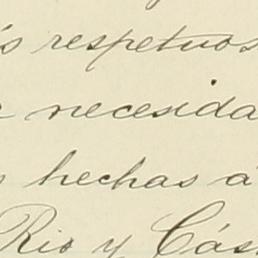 s respetuos
necesida
hechas á
Rio y Cás